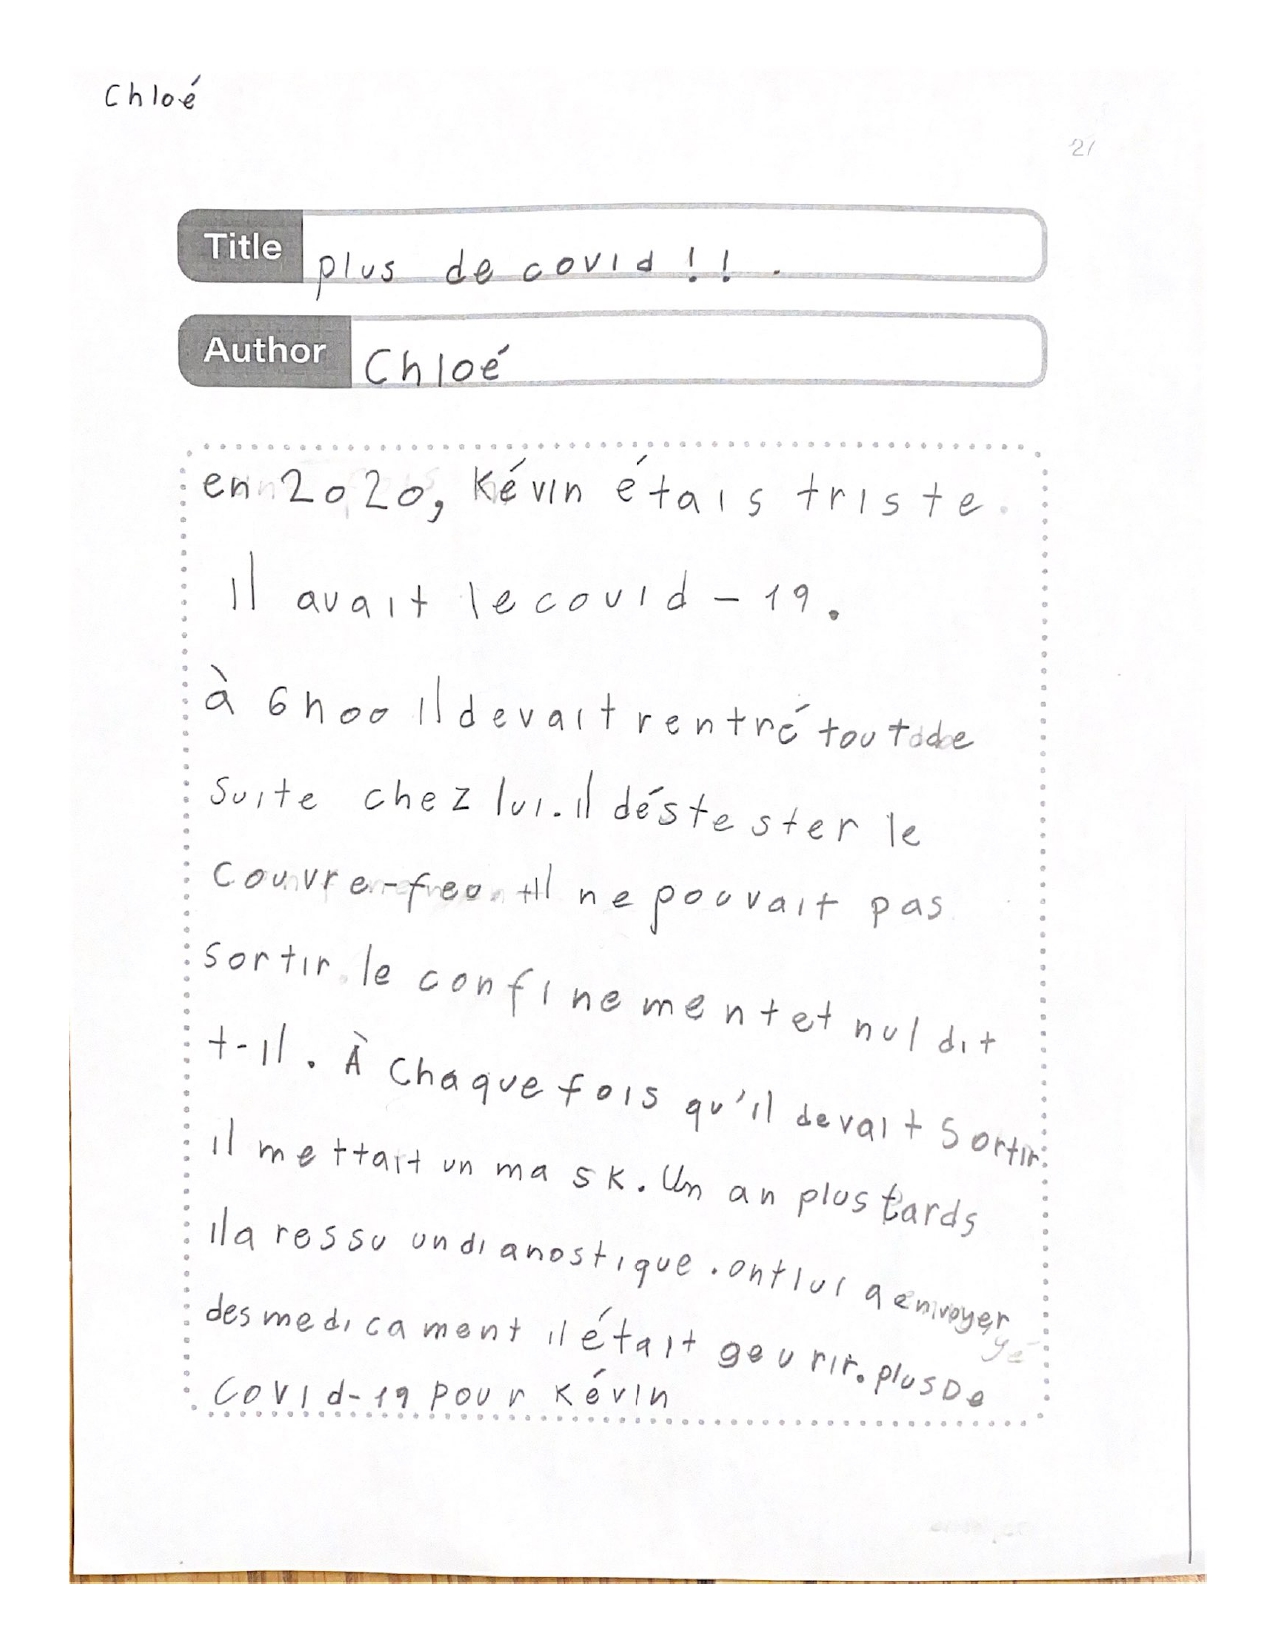 Chloé
21
Title plus de covid !! .
Author Chloé
en 2020, Kévin étais triste.
il avait le covid-19.
à 6h00 il devait rentré tout de
suite chez lui. il déstester le
couvre-feo. il ne pouvait pas
sortir. le confinement et nul dit
t-il. À chaque fois qu'il devait sortir
il mettait un mask. Un an plus tards
il a ressu un dianostique. ont lui a envoyer
des medicament il était geurir. plus De
COVID-19 pour Kévin